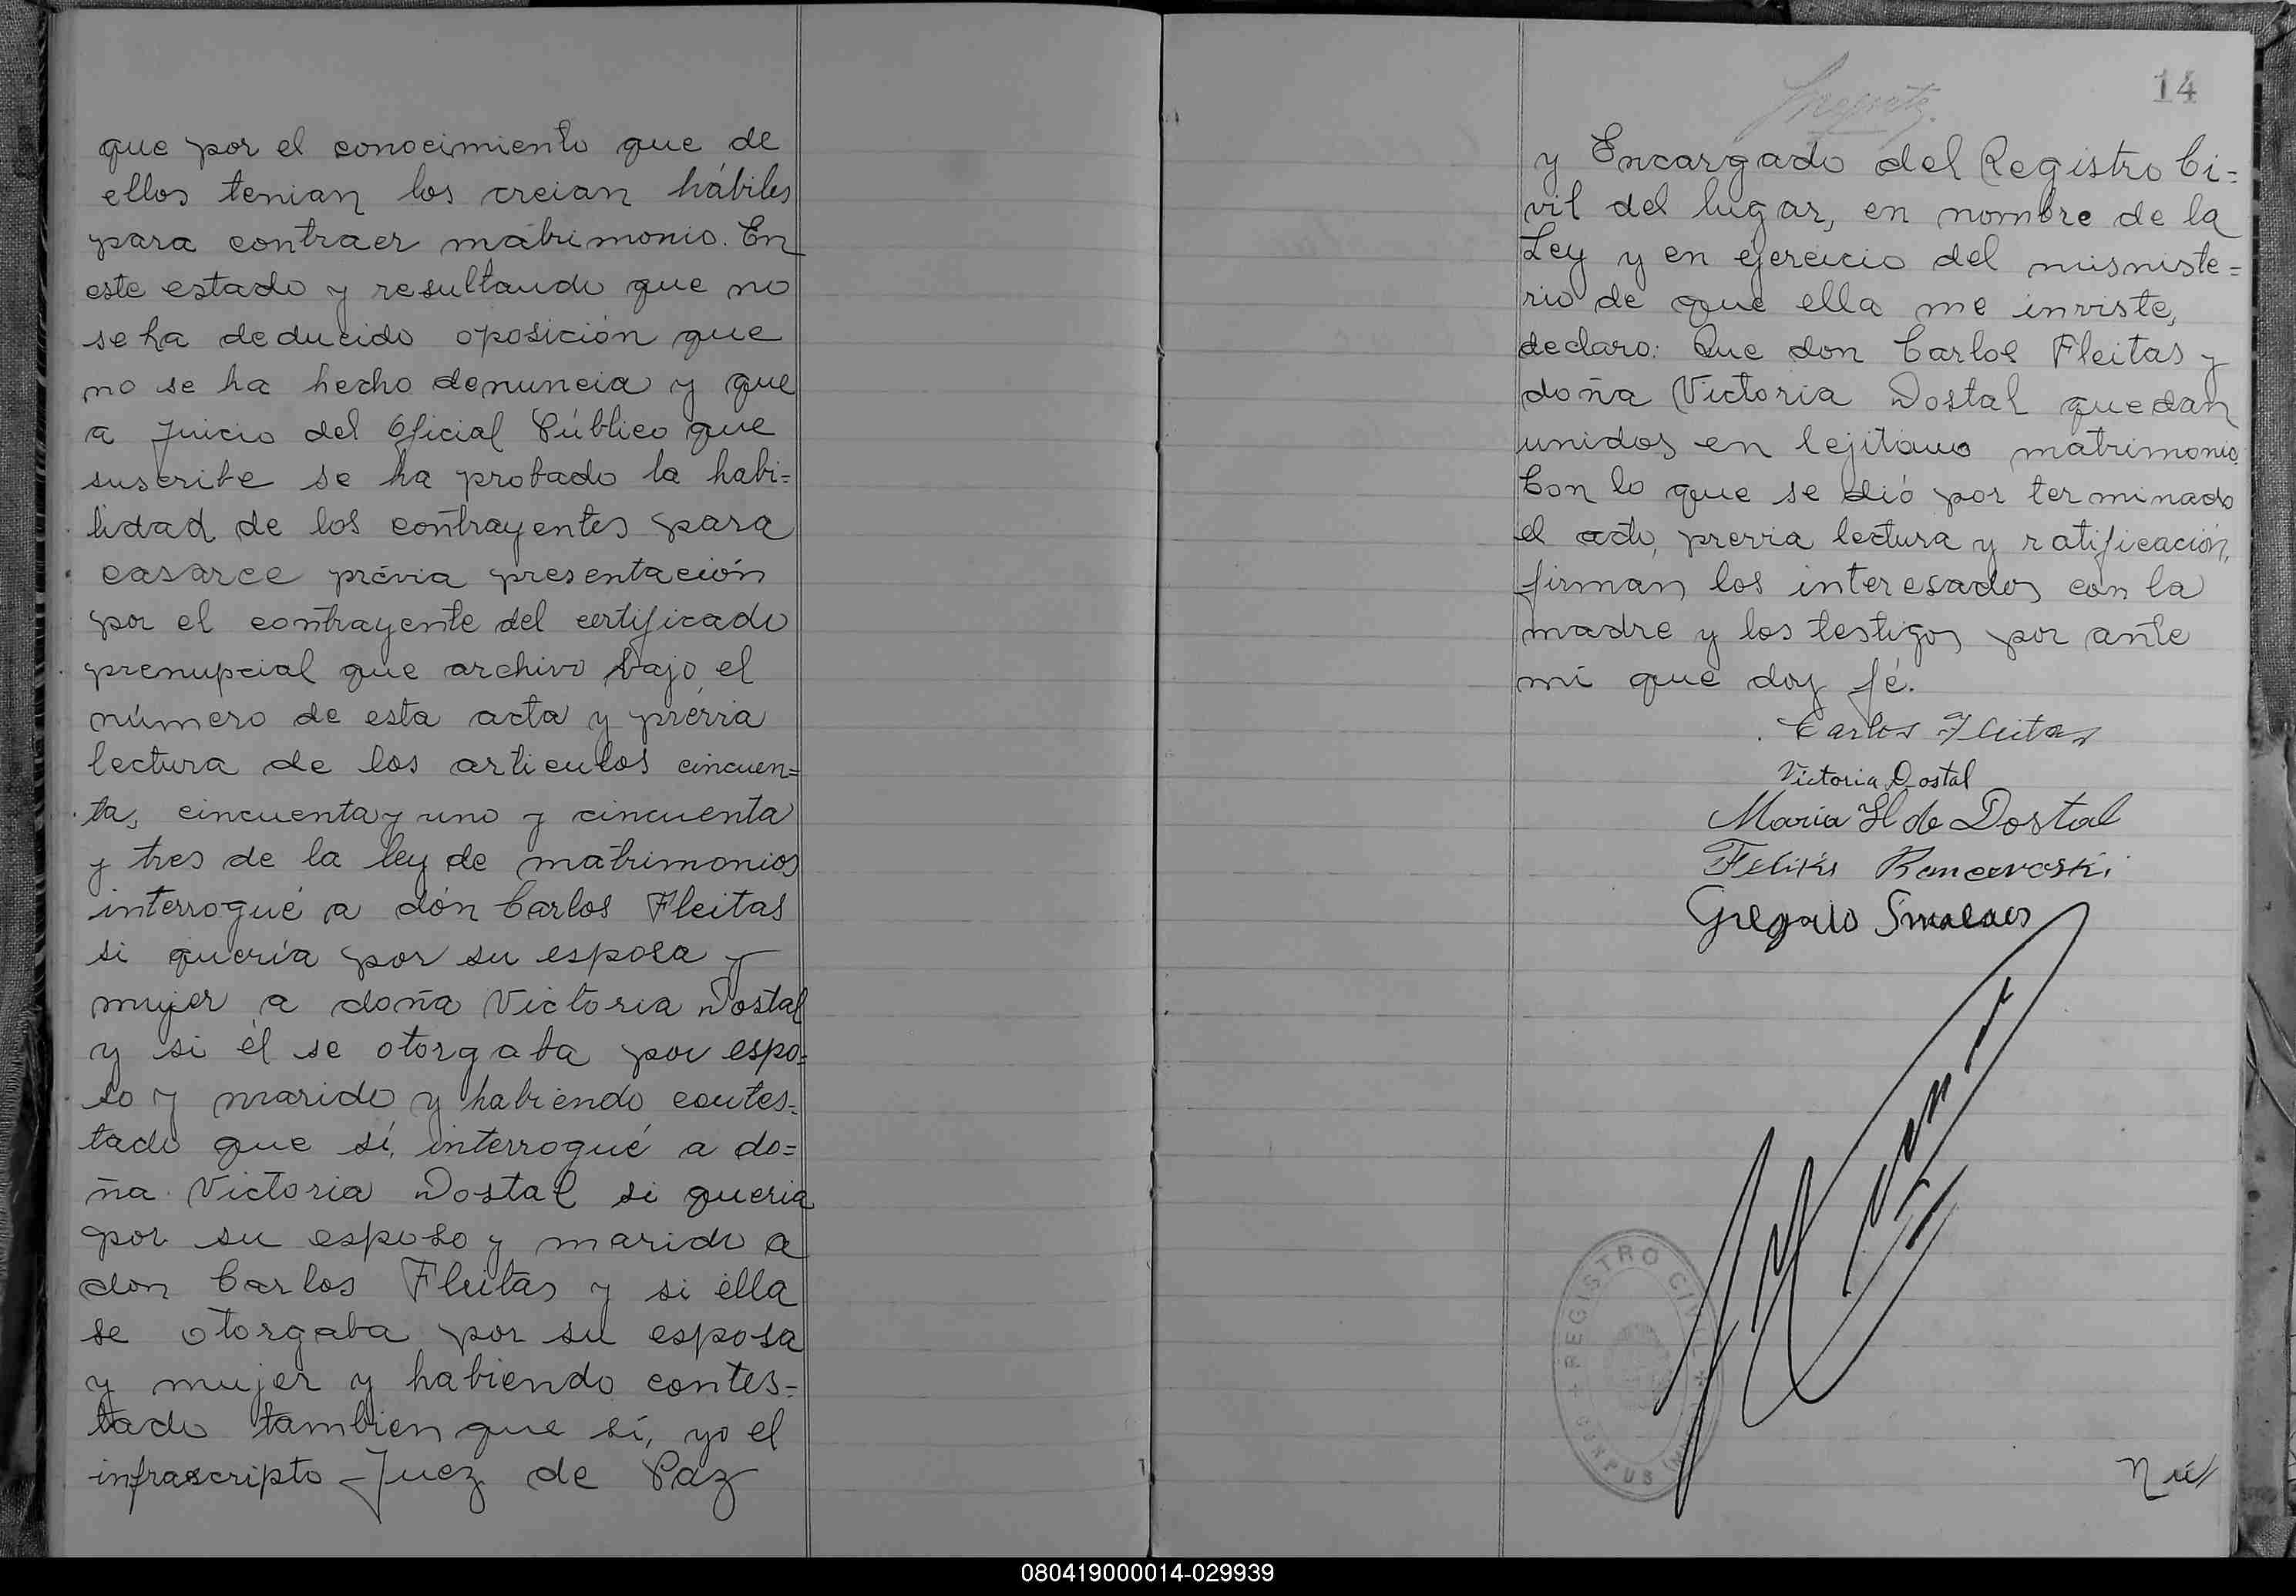 que por el conocimiento que de
ellos tenian los creian hábiles
para contraer matrimonio. En
este estado y resultando que no
se ha deducido oposición que
no se ha hecho denuncia y que
a juicio del Oficial Público que
suscribe se ha probado la habi=
lidad de los contrayentes para
casarce prévia presentación
por el contrayente del certificado
prenupcial que archivo bajo el
número de esta acta y prévia
lectura de los articulos cincuen=
ta, cincuenta y uno y cincuenta
y tres de la ley de matrimonios
interrogué a dón Carlos Fleitas
si quería por su esposa y
mujer a doña Victoria Dostal
y si él se otorgaba por espo=
so y marido y habiendo contes=
tado que sí, interrogué a do=
ña Victoria Dostal si queria
por su esposo y marido a
don Carlos Fleitas y si ella
se otorgaba por su esposa
y mujer y habiendo contes=
tado tambien que sí, yo el
infrascripto Juez de Paz
14
y Encargado del Registro Ci=
vil del lugar, en nombre de la
Ley y en ejercicio del misniste=
rio de que ella me inviste,
declaro: Que don Carlos Fleitas y
doña Victoria Dostal quedan
unidos en lejitimo matrimonio.
Con lo que se dió por terminado
el acto, previa lectura y ratificación,
firman los interesados con la
madre y los testigos por ante
mi que doy fé.
Carlos Fleitas
Victoria Dostal
Maria H de Dostal
Feliks
Gregorio
REGISTRO CIVIL
080419000014-029939